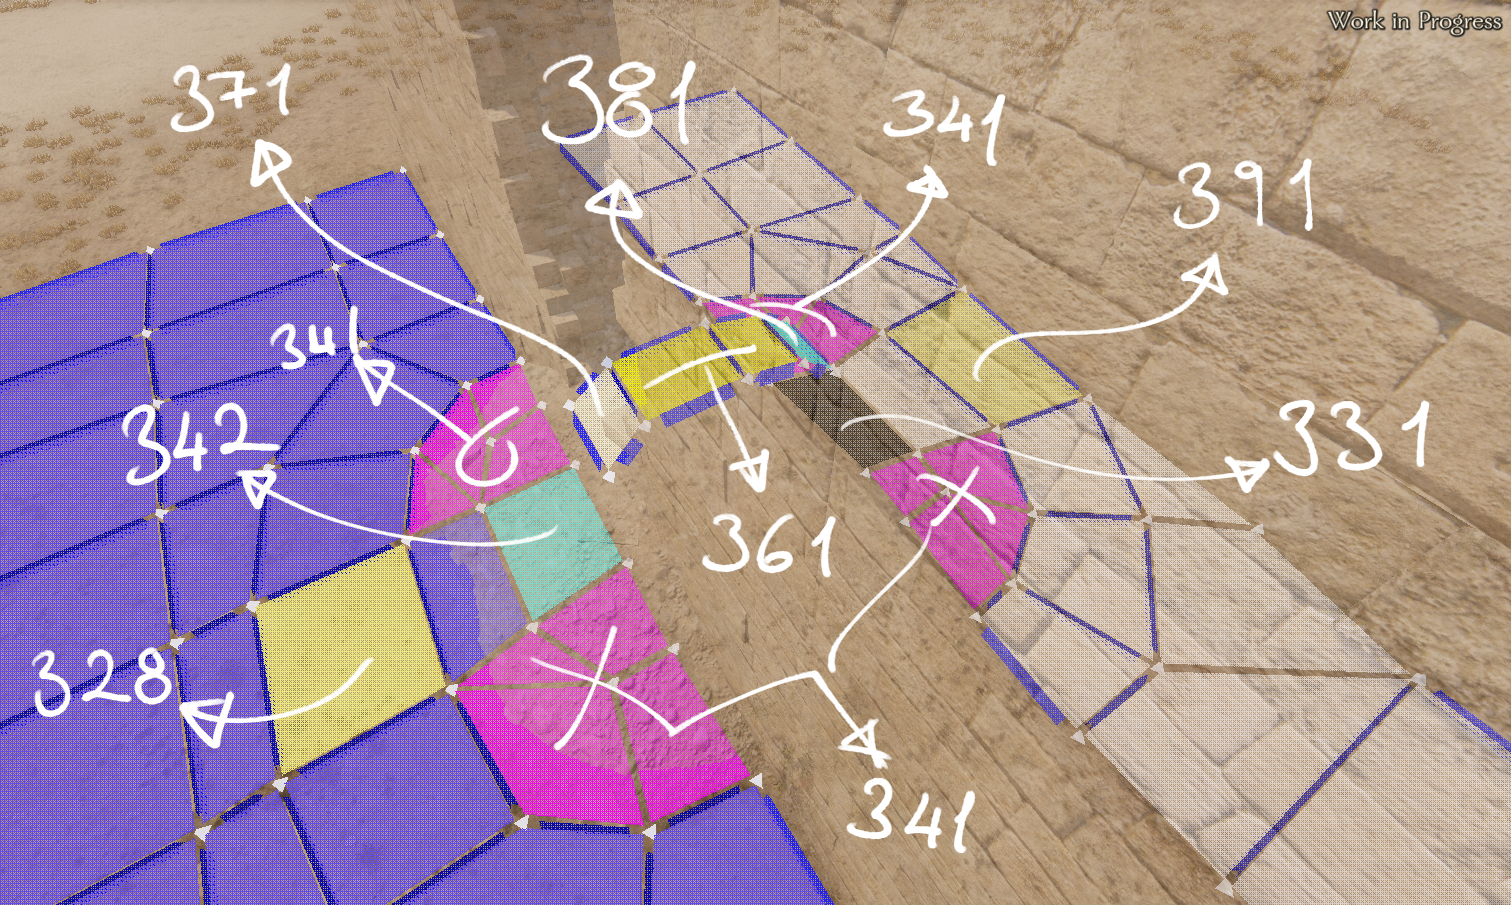 Work in Progress
371
381
341
391
341
342
331
361
328
341